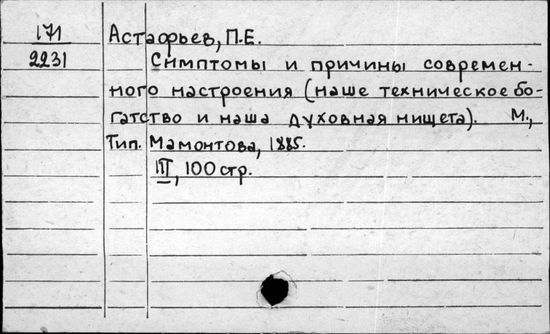 171 Астафьев, П.Е.
2231 Симптомы и причины современ-
ного настроения (наше техническое бо-
гатство и наша духовная нищета). М.,
Тип. Мамонтова, 1885.
III, 100 стр.